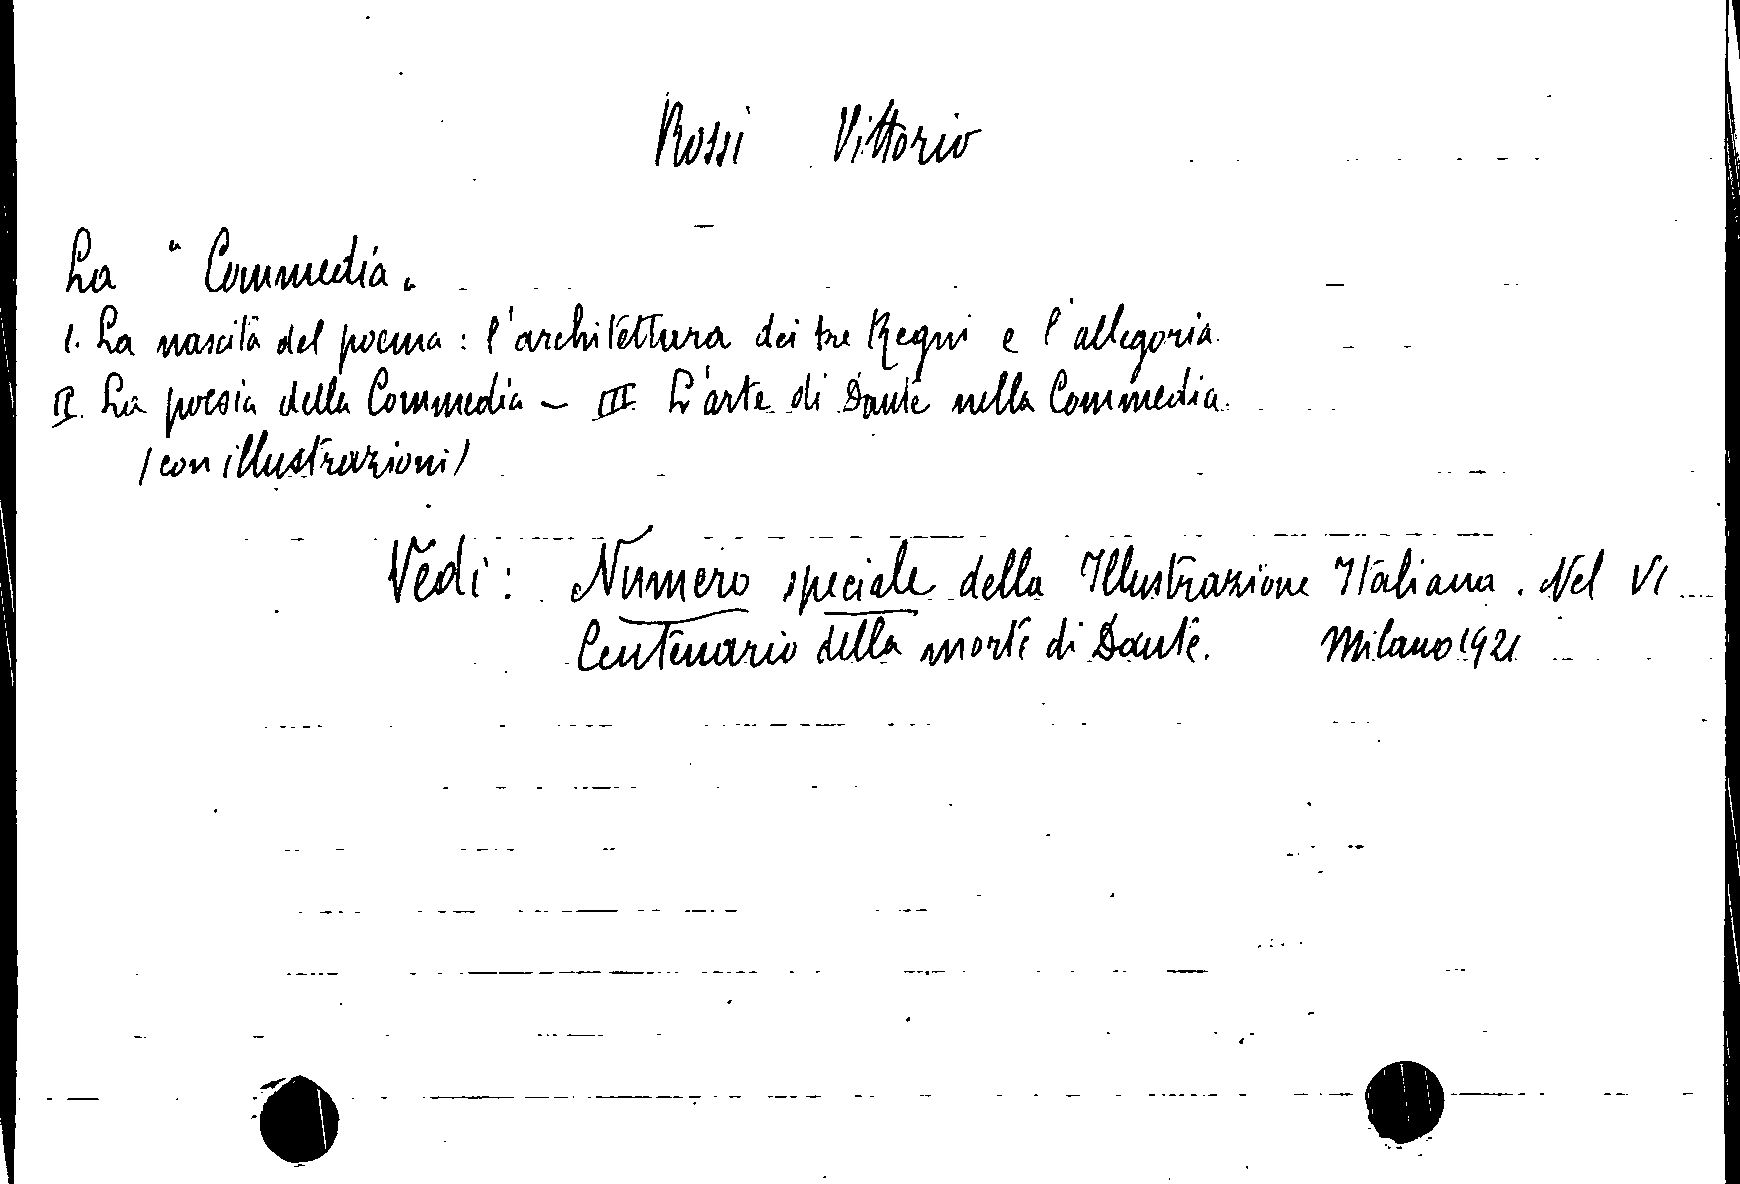 Rossi Vittorio
La "Commedia"
I. La nascità del poema: l'architettura dei tre Regni e l'allegoria.
II. La poesia della Commedia - III. L'arte di Dante nella Commedia.
/con illustrazioni/
Vedi: Numero speciale della Illustrazione Italiana. Nel VI
Centenario della morte di Dante. Milano 1921